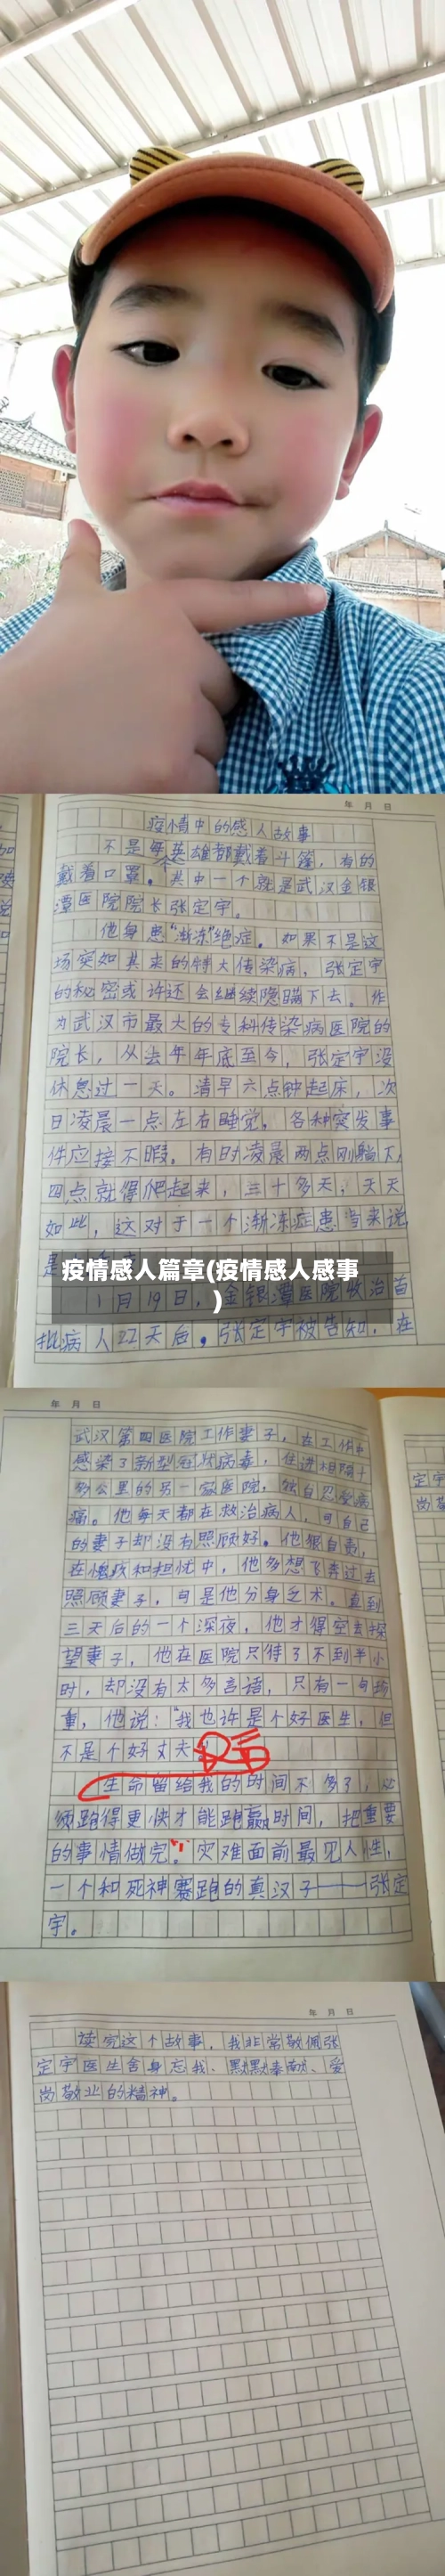 年 月 日
疫情中的感人故事
不是每个英雄都戴着斗篷，有的
戴着口罩。其中一个就是武汉金银
潭医院院长张定宇。
他身患“渐冻”绝症。如果不是这
场突如其来的特大传染病，张定宇
的秘密或许还会继续隐瞒下去。作
为武汉市最大的专科传染病医院的
院长，从去年年底至今，张定宇没
休息过一天。清早六点钟起床，次
日凌晨一点左右睡觉，各种突发事
件应接不暇。有时凌晨两点刚躺下，
四点就得爬起来，三十多天，天天
如此，这对于一个渐冻症患者来说，
是
疫情感人篇章(疫情感人感事
)
1月19日，金银潭医院收治首
批病人22天后，张定宇被告知，在
年 月 日
武汉第四医院工作妻子，在工作中
感染了新型冠状病毒，住进相隔十
多公里的另一家医院，独自忍受病
痛。他每天都在救治病人，可自己
的妻子却没有照顾好。他狠自责，
在愧疚和担忧中，他多想飞奔过去
照顾妻子，可是他分身乏术。直到
三天后的一个深夜，他才得空去探
望妻子，他在医院只待了不到半小
时，却没有太多言语，只有一句
重，他说：“我也许是个好医生，但
不是个好丈夫
生命留给我的时间不多了，必
须跑得更快才能跑赢时间，把重要
的事情做完。”灾难面前最见人性，
一个和死神赛跑的真汉子——张定
宇。
定宇
岗敬
年 月 日
读完这个故事，我非常敬佩张
定宇医生舍身忘我、默默奉献、爱
岗敬业的精神。